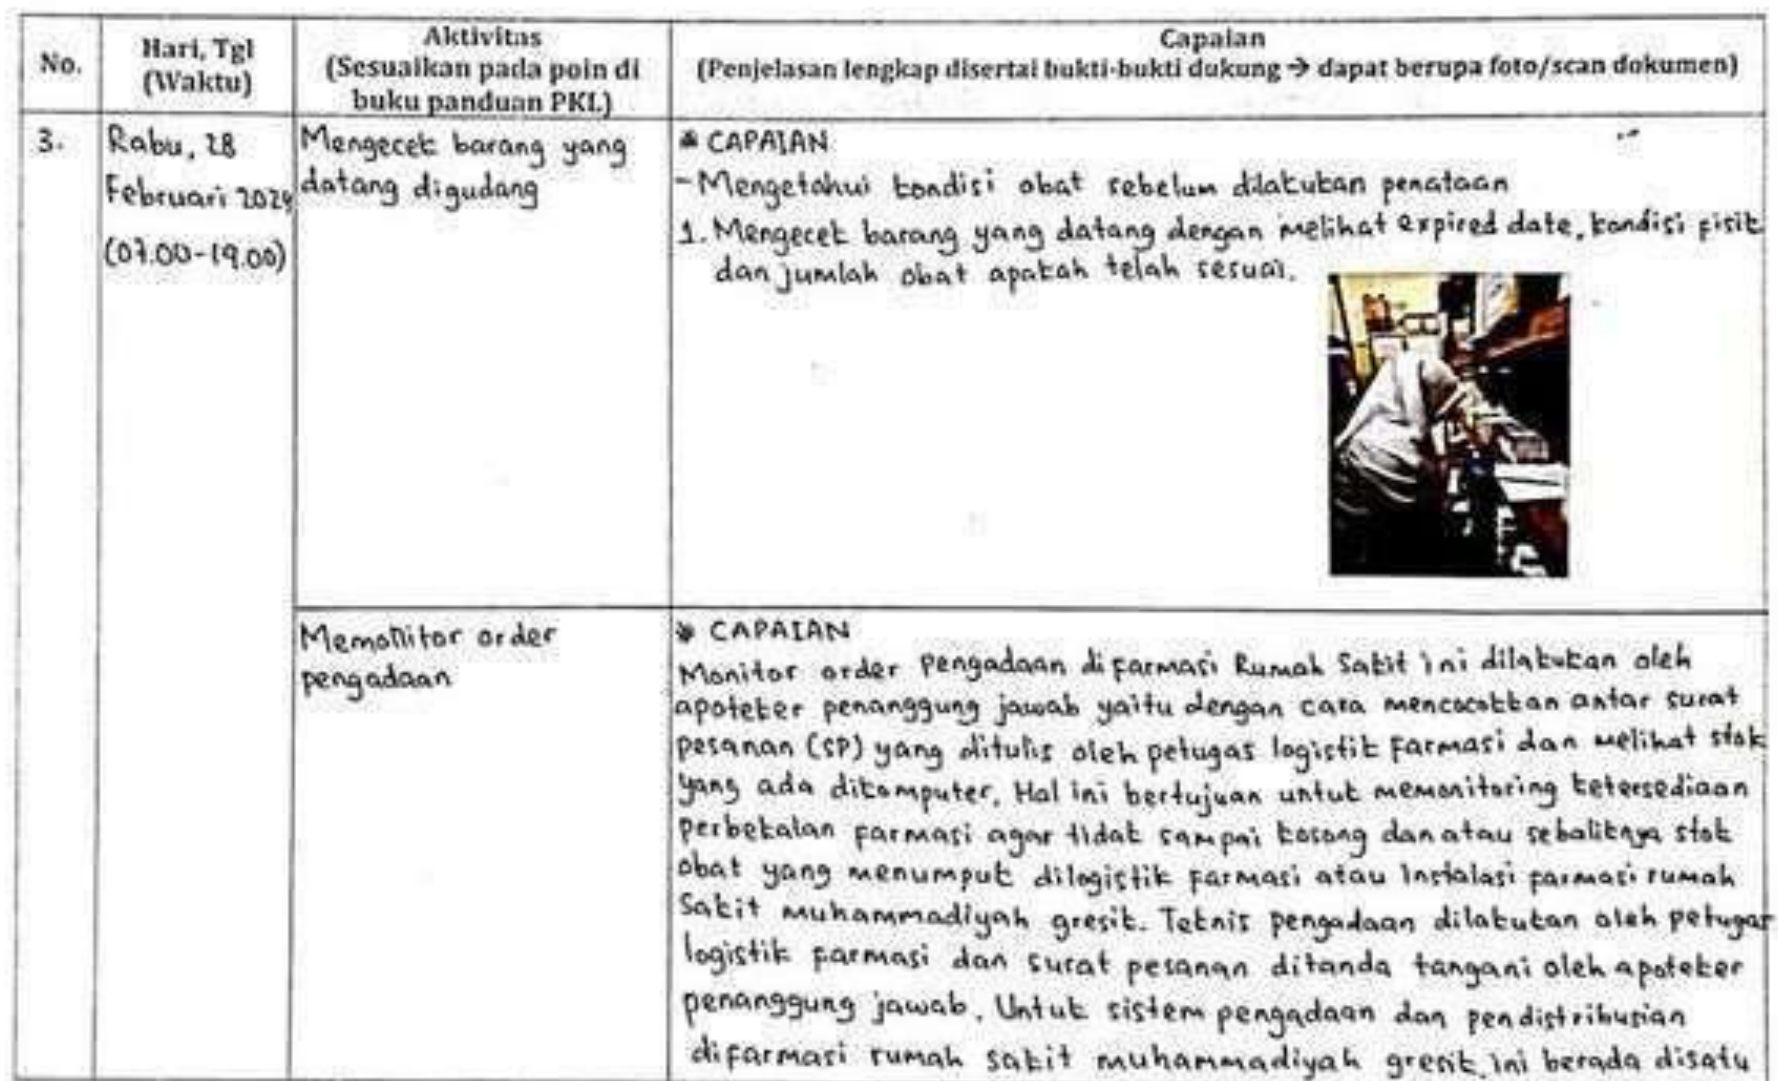 No.
Hari, Tgl
(Waktu)
Aktivitas
(Sesuaikan pada poin di
buku panduan PKL)
Capaian
(Penjelasan lengkap disertai bukti-bukti dukung → dapat berupa foto/scan dokumen)
3.
Rabu, 28
Februari 2024
(07.00-19.00)
Mengecek barang yang
datang digudang
* CAPAIAN
- Mengetahui kondisi obat sebelum dilakukan penataan
1. Mengecek barang yang datang dengan melihat expired date, kondisi fisik
dan jumlah obat apakah telah sesuai.
Memonitor order
pengadaan
* CAPAIAN
Monitor order pengadaan difarmasi Rumah Sakit ini dilakukan oleh
apoteker penanggung jawab yaitu dengan cara mencocokkan antar surat
pesanan (SP) yang ditulis oleh petugas logistik farmasi dan melihat stok
yang ada dikomputer. Hal ini bertujuan untuk memonitoring ketersediaan
perbekalan farmasi agar tidak sampai kosong dan atau sebaliknya stok
obat yang menumpuk dilogistik farmasi atau Instalasi farmasi rumah
Sakit muhammadiyah gresik. Teknis pengadaan dilakukan oleh petugas
logistik farmasi dan surat pesanan ditanda tangani oleh apoteker
penanggung jawab. Untuk sistem pengadaan dan pendistribusian
difarmasi rumah sakit muhammadiyah gresik ini berada disatu